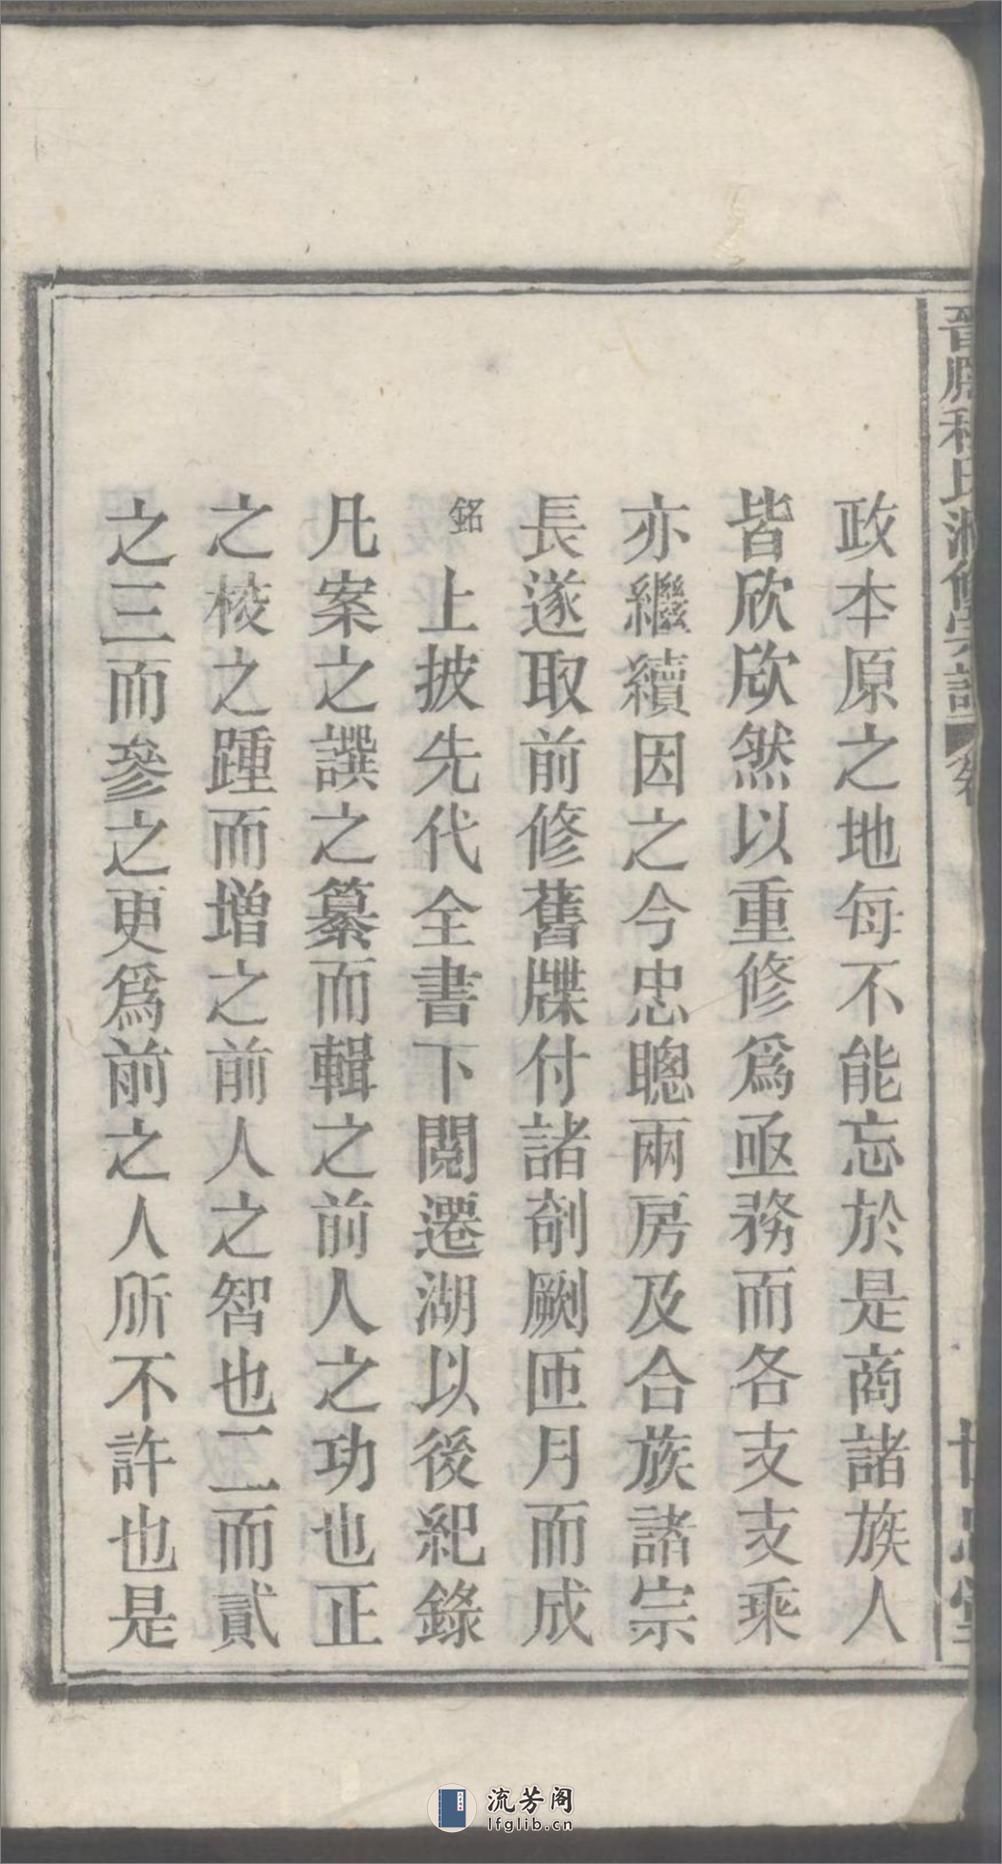 政本原之地每不能忘於是商諸族人
皆欣欣然以重修爲亟務而各支支乘
亦繼續因之今忠聰兩房及合族諸宗
長遂取前修舊牒付諸剞劂匝月而成
銘上披先代全書下閱遷湖以後紀錄
凡案之譔之纂而輯之前人之功也正
之稜之踵而增之前人之智也二而貳
之三而參之更爲前之人所不許也是
流芳阁
lfglib.cn